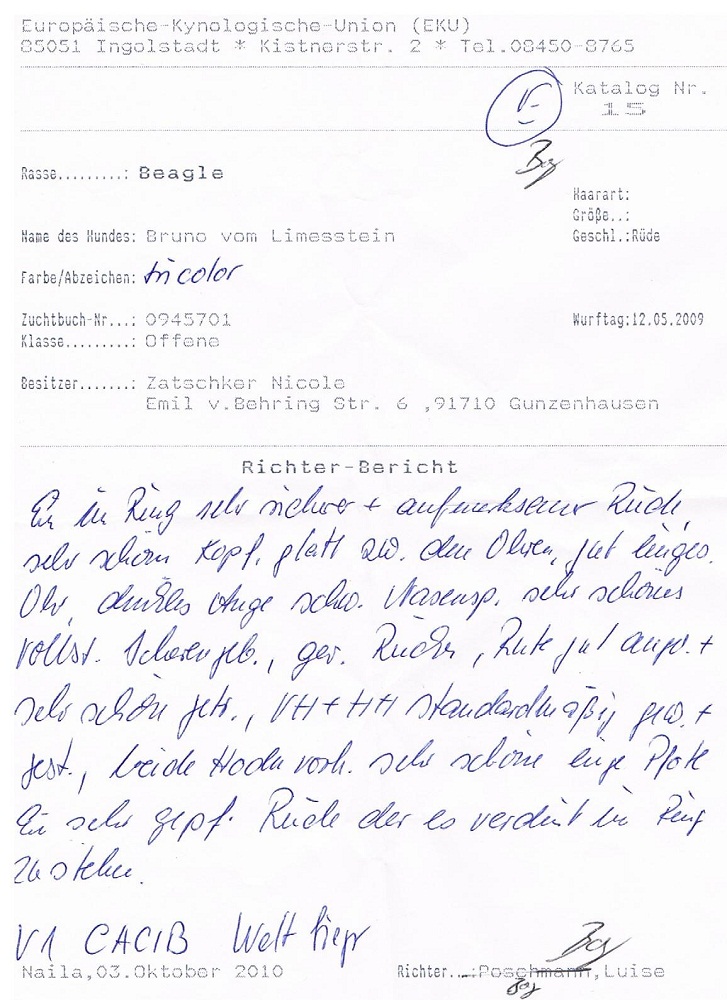 Europäische-Kynologische-Union (EKU)
85051 Ingolstadt * Kistnerstr. 2 * Tel.08450-8765
V
Katalog Nr.
15
Rasse.........: Beagle
Haarart:
Größe..:
Name des Hundes: Bruno vom Limesstein
Geschl.:Rüde
Farbe/Abzeichen: tricolor
Zuchtbuch-Nr...: 0945701
Wurftag:12.05.2009
Klasse.........: Offene
Besitzer.......: Zatschker Nicole
Emil v.Behring Str. 6 ,91710 Gunzenhausen
Richter-Bericht
Ein im Ring sehr sicherer + aufmerksamer Rüde,
sehr schöner Kopf, glatt zw. den Ohren, gut
Ohr, dunkles Auge schw. Nasensp. sehr schönes
vollst. Scherengeb., ger. Rücken, Rute gut anges. +
sehr schön getr., VH + HH standardmäßig gew. +
gest., beide Hoden vorh. sehr schöne enge Pfote
Ein sehr gepf. Rüde der es verdient im Ring
zu stehen.
V1 CACIB Welt Siegr
Naila,03.Oktober 2010
Richter...:Poschmann,Luise